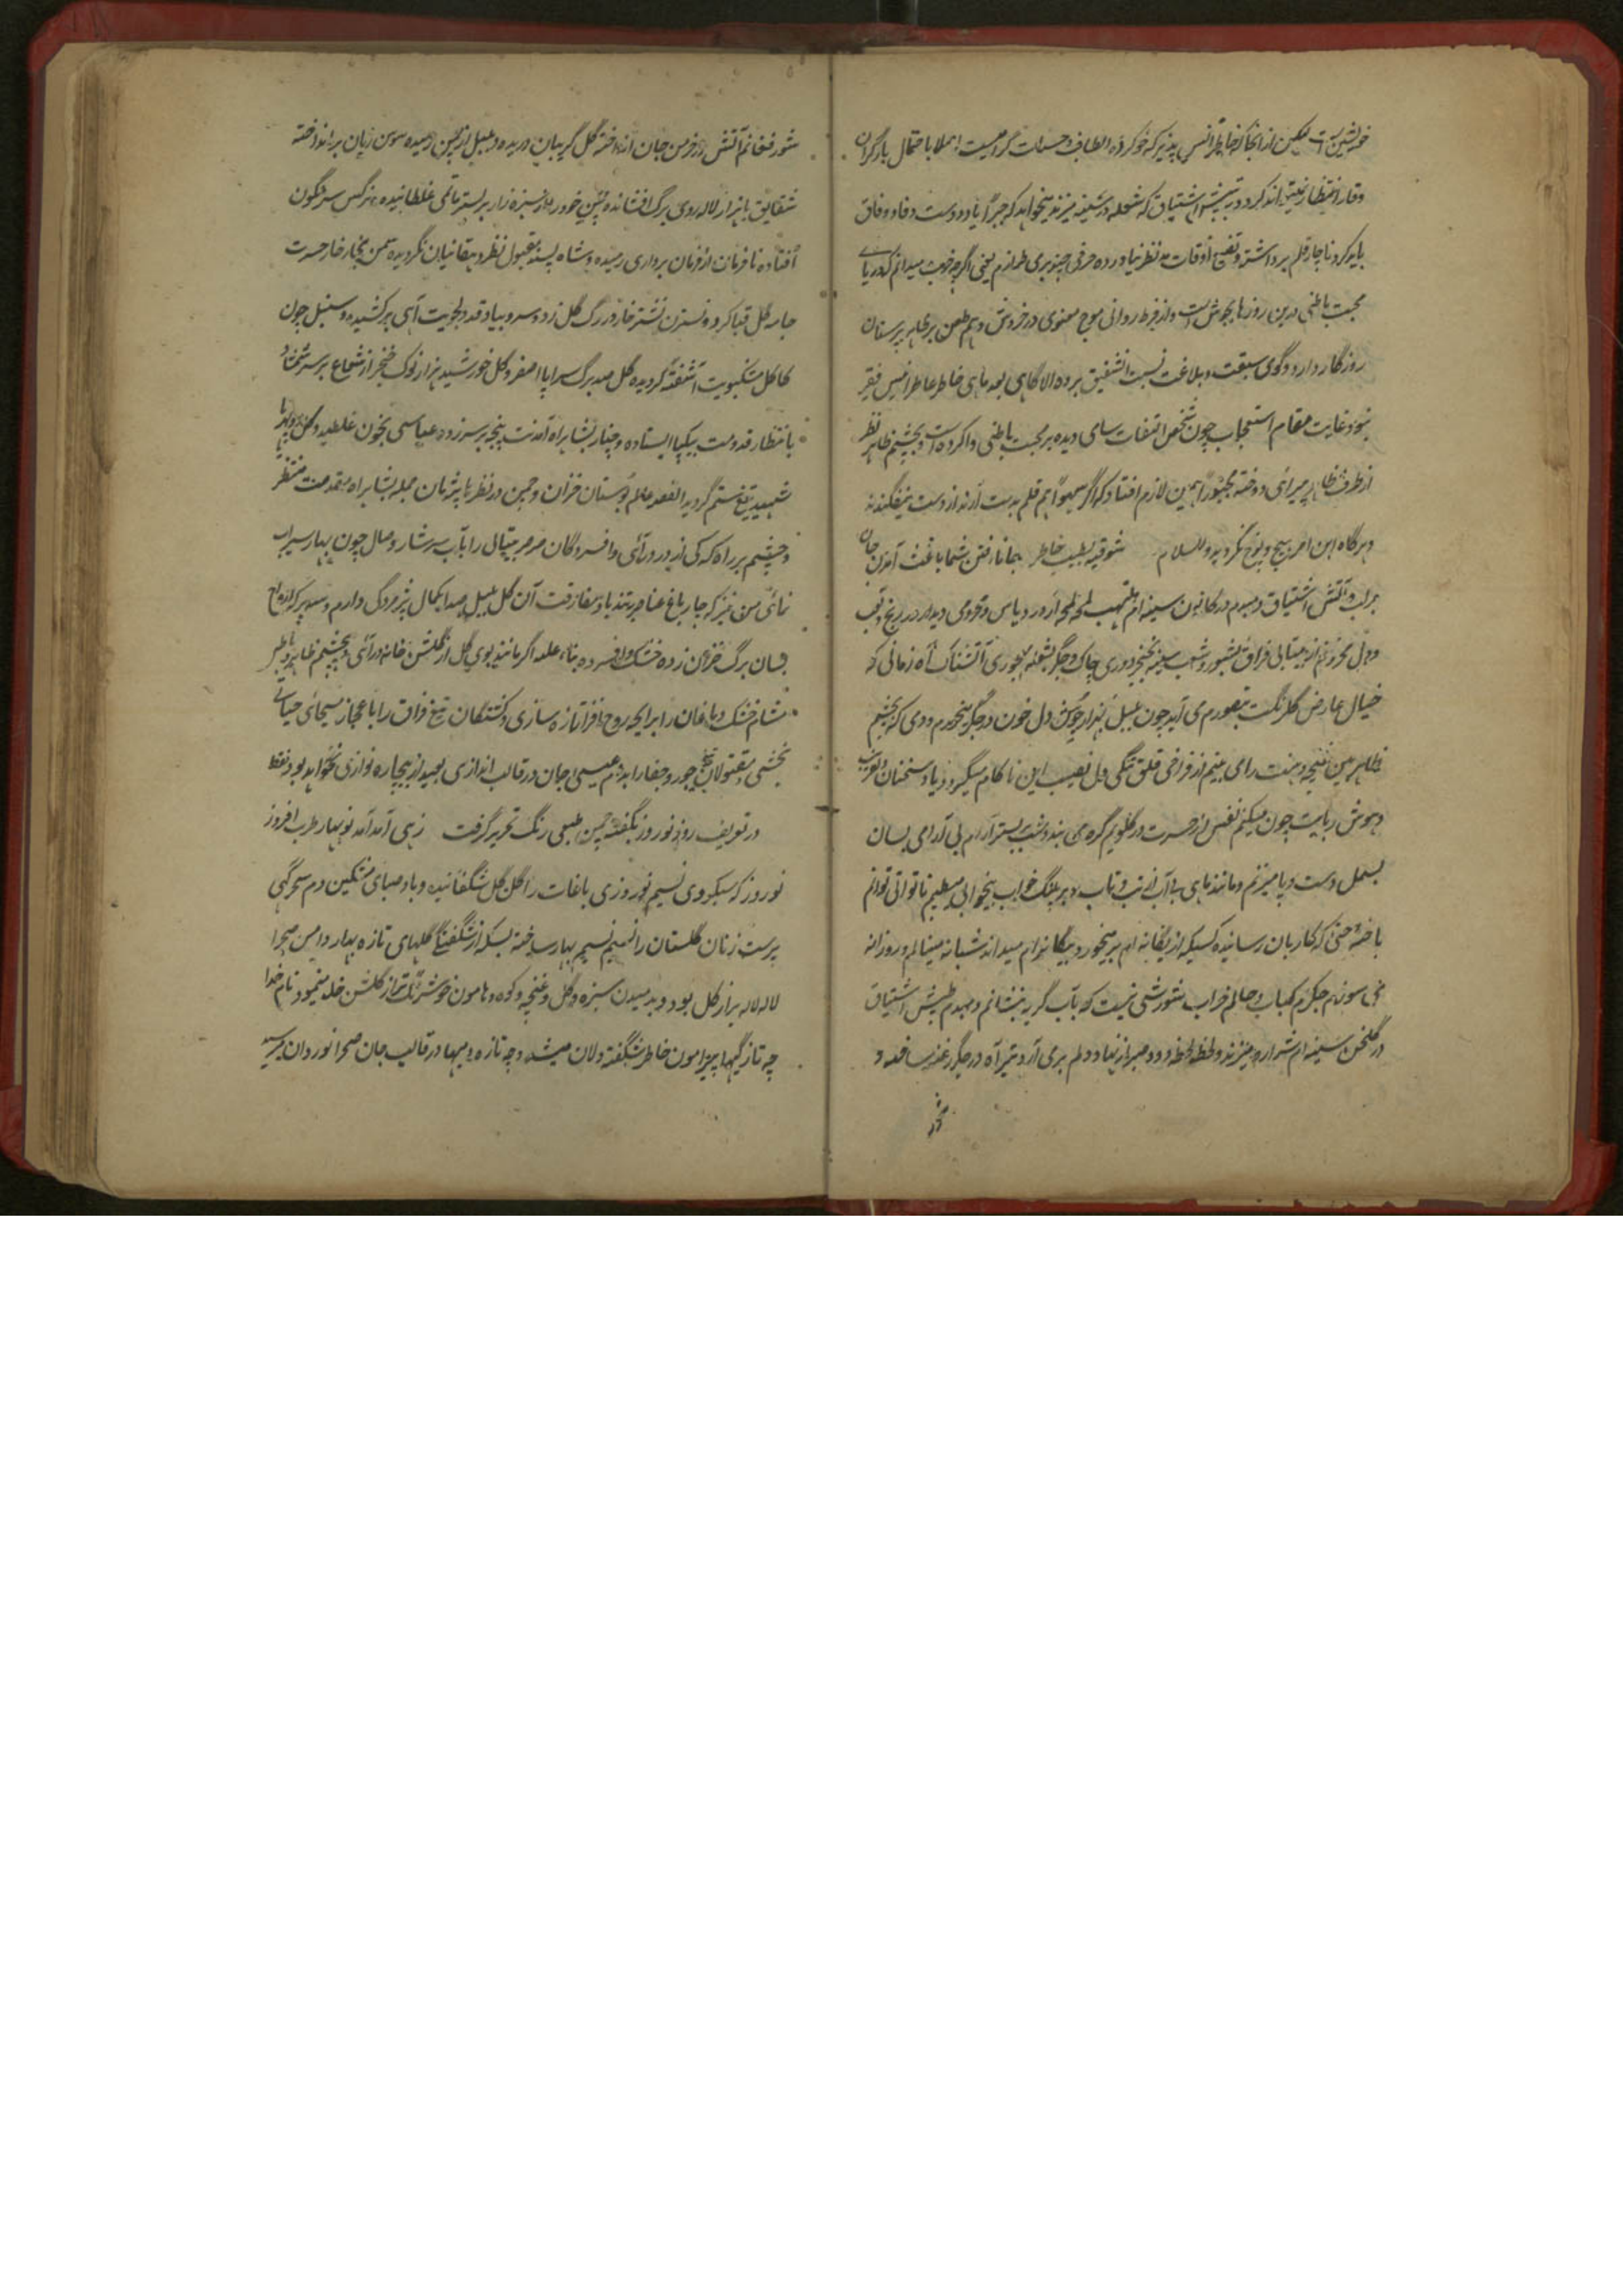 خویشتن است لیکن از آنجا که خاطر انس پذیر که خو کرده الطاف و حسنات گرامیست اصلا باحتمال بار گران
وقار انتظار نمیتواند کرد و تپش اشتیاق که شعله در سینه میزند میخواهد که جبراً یاد دوست وفا و وفاق
باید کرد ناچار قلم برداشته و تضیع اوقات بنظر نیاورده حرفی چند بری طرازم یعنی اگرچه خوب میدانم که دریای
محبت باطنی درین روزها بجوش است و از فرط روانی موج معنوی در خروش و هم طعن بر ظاهر پرستان
روزگار دارد و گوی سبقت و بلاغت نسبت شفیق برده الا گاهی بعد ماهی خاطر عاطر انیس فقیر
بنود غایت مقام استعجاب چون شخص التفات سامی دیده بر محبت باطنی وا کرده است و بچشم ظاهر نظر
از طرف ظاهر میرائی دوخته مجبوراً همین لازم افتاد که اگر سهواً هم قلم بدست آرند از دست نیفگنند
هرگاه این امر هیچ وپوچ نگردید والسلام شوقیه بطبیب خاطر جانا رفتن شما باعث آمدن جان
براب و آتش اشتیاق دمبدم در کانون سینه ام ملتهب لمحه لمحه از ورد یاس و محرومی دیدار در رنج و تعب
و دل محزونم از بیتابی فراق بشور و شب سینه بخنجر دوری چاک و جگر بشعله مهجوری آتشناک آه زمانی که
خیال عارض گلرنگت بتصورم می آید چون بلبل هزار جوش دل خون در جگر میخورم و دمی که بچشم
ظاهر بین غنچه دهنت رای بینم از فراخی قلق تنگی دل نصیب این ناکام میگردد یاد سخنان دلفریب
و هوش ربایت چون میکنم نفس از حسرت در گلویم گره می بندد شب بستر آرام بی آرامی بسان
بسمل دست و پا میزنم و مانند ماهی بی آب از تب و تاب بر پلنگ خواب بیخوابی میطپم ناتوانی توانم
باخته حتی که کار بجان رسانیده کسیکه از یگانه ام برمیخورد بیگانه ام میداند شبانه مینالم و روزانه
می سوزم جگرم کباب و حالم خراب شورشی نیست که بآب گریه بنشانم و هردم طپش اشتیاق
در گلخن سینه ام شراره میزند و لحظه لحظه دود صبر از نهاد دلم بری آرد و تیر آه در جگر غذر ساخته و
شور فغانم آتش در خرمن جان انداخته گل گریبان دریده و بلبل از چمن رمیده سوسن زبان برانداخته
شقایق با هزار لاله روی برگ افشانده چمن خود را از سبزه زار بر بستر ماتمی غلطانیده نرگس سرنگون
افتاده نافرمان از فرمان برداری رمیده و شاه پسند مقبول نظر دهقانیان نگردیده سمن بخار خار حسرت
جامه گل قبا کرده نسترن نشتر خار در رگ گل زده سرو بیاد قد دلجویت آهی برکشیده و سنبل چون
کاکل مشکبویت آشفته گردیده گل صد برگ سراپا اصفر و گل خورشید هزار نوک خنجر از شعاع بر سر شمشاد
بانتظار قدومت بیکپا ایستاده و چنار بشاهراه آمدنت پنجه بر سر زده عباسی بخون غلطیده و گل
شهید تیغ ستم گردیده القصه عالم بوستان خزان و چمن در نظرها پژمان جمله بشاهراه مقدمت منتظر
و چشم بر راه که کی از در درآئی و افسردگان صرصر بیتابی را بآب سرشار وصال چون بهار سیراب
نمائی من نیز که چار باغ عناصرم تندباد مفارقت آن گل بلبل صدا بکمال پژمردگی دارم و
بسان برگ خزان زده خشک و افسرده بناءً علیه اگر مانند بوی گل از گلشن خانه درآئی و بچشم ظاهر
مشام خشک دماغان را برایحه روح افزا تازه سازی و کشتگان تیغ فراق را باعجاز مسیحائی حیاتی
بخشی و مقتولان تیغ جور و جفا را بدم عیسی جان در قالب اندازی بعید از بیچاره نوازی نخواهد بود فقط
در تعریف روز نوروز بگفته چمن طبعی رنگ تحریر گرفت زهی آمد آمد نوبهار طرب افروز
نوروز که سبکروی نسیم نوروزی باغات را گل گل شگفانیده و باد صبای مشکین دم سحرگهی
پرست زنان گلستان را شمیم نسیم بهار ساخته بسکه از شگفتگی گلهای تازه بهار دامن صحرا
لاله لاله پر از گل بود و بدمیدن سبزه و گل و غنچه و کوه و هامون خوشرنگ تر از گلشن خلد مینمود نام خدا
چه تازگیها پیرامون خاطر شگفته دلان میشد و چه تازه دمیها در قالب جان صحرا نوردان میرسید